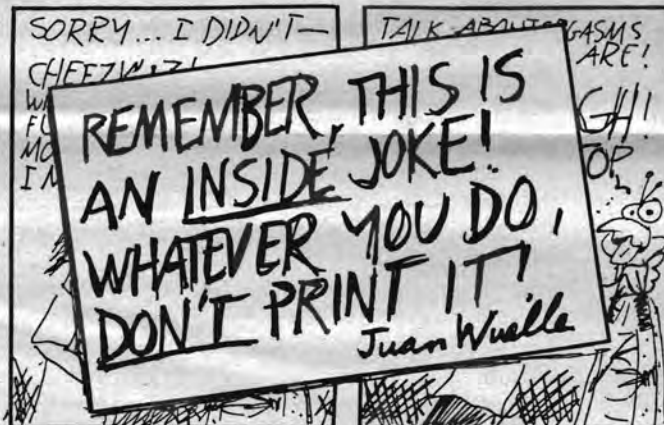 SORRY... I DIDN'T—
CHEEZWIZ!
TALK ABOUT ORGASMS
ARE!
GH!
OP
REMEMBER, THIS IS
AN INSIDE JOKE!
WHATEVER YOU DO,
DON'T PRINT IT!
Juan Wuelle